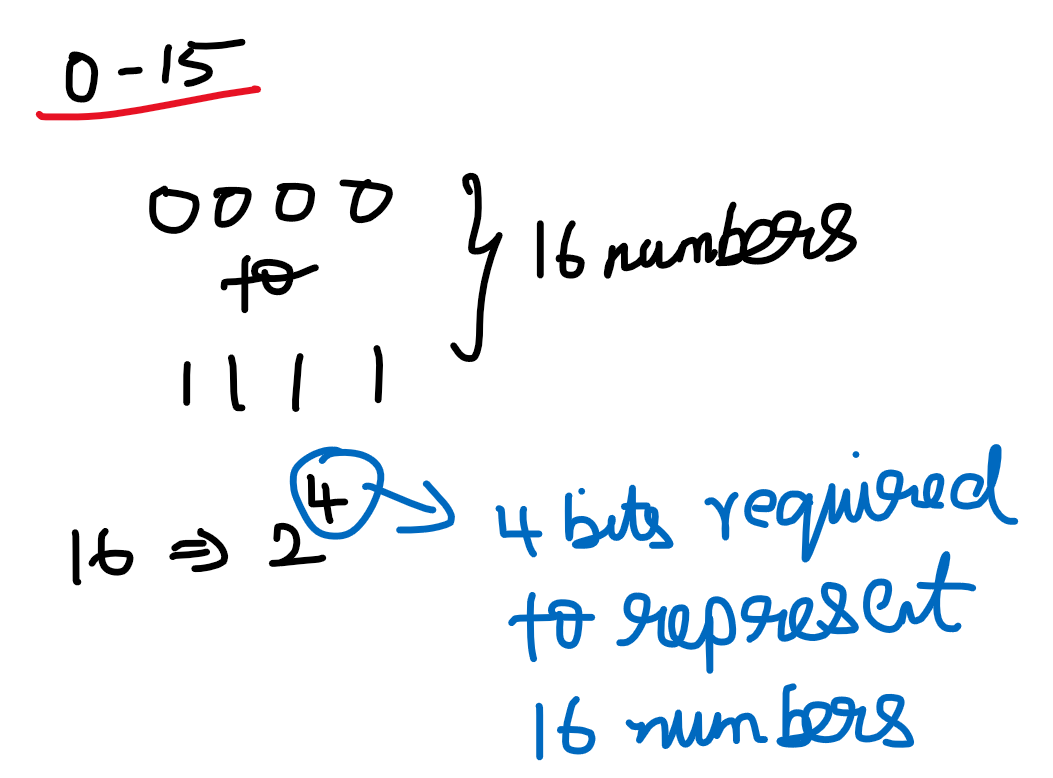 0-15
0000
to
1111
16 numbers
16 ⇒ 2⁴
4 bits required
to represent
16 numbers